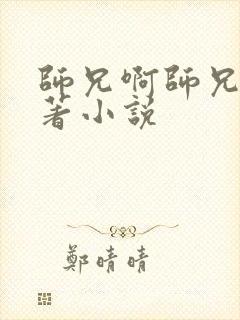 師兄啊師兄
著小說
鄭晴晴